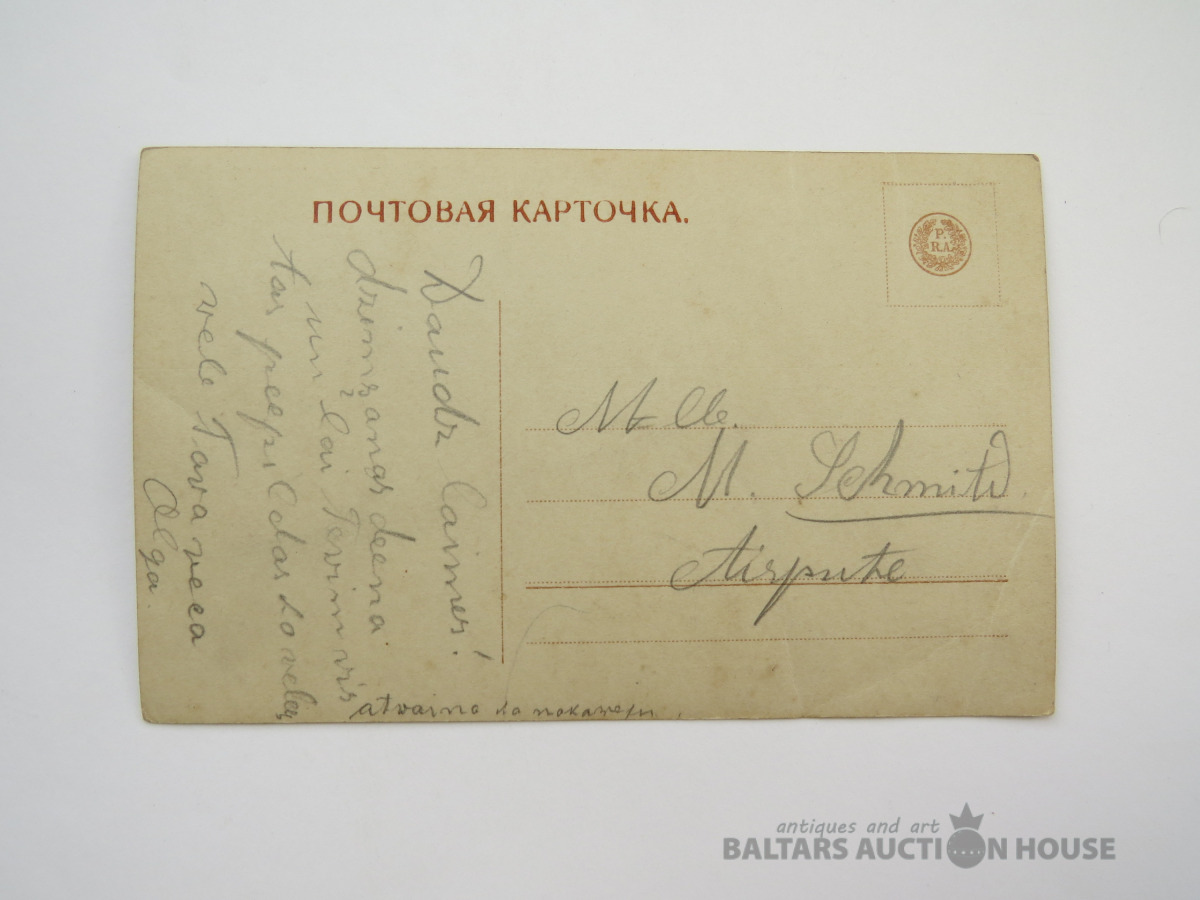 ПОЧТОВАЯ КАРТОЧКА.
P.
R.A.
Daudz laimes!
dzimşanas deena
un lai Tevim vis
tas peepildas ko velas
vele Tava veca
Olga.
atvaino ka nokaveju.
Mlle.
M. Schmidt
Aizpute
antiques and art
BALTARS AUCTION HOUSE